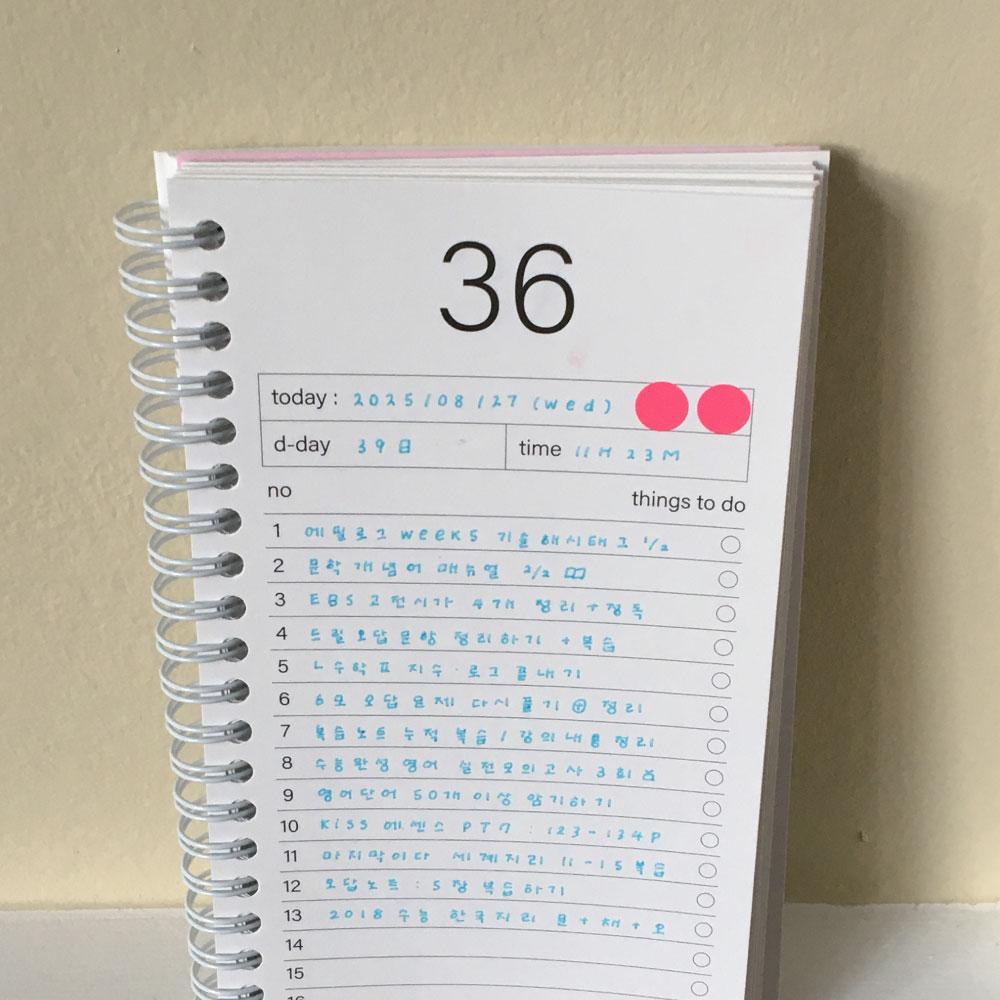 36
today : 2025/08/27 (wed)
d-day 39日 time 11H 23M
no things to do
1 에필로그 weeks 기출 해시태그 1/2
2 문학 개념어 매뉴얼 2/2
3 EBS 고전시가 4개 정리 + 정독
4 드릴 오답 문항 정리하기 + 복습
5 ㄴ수학 II 지수·로그 끝내기
6 6모 오답 문제 다시 풀기 ⊕ 정리
7 복습노트 누적 복습 / 강의 내용 정리
8 수능완성 영어 실전모의고사 3회
9 영어단어 50개 이상 암기하기
10 KISS 에센스 PT 7 : 123-134P
11 마지막이다 세계지리 11-15 복습
12 오답노트 : 5장 복습하기
13 2018 수능 한국지리 문 + 채 + 오
14
15